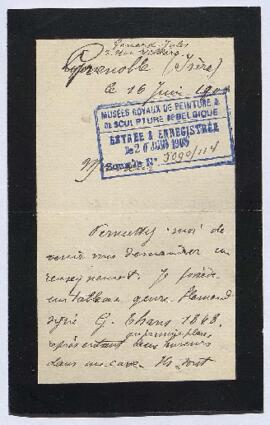 Jules
Grenoble (Isère)
le 16 Juin 190
MUSÉES ROYAUX DE PEINTURE &
DE SCULPTURE DE BELGIQUE
ENTRÉE & ENREGISTRÉE
le 20 JUIN 1905
N° 3090/114
Permettez moi de
venir vous demander un
renseignement. Je possède
un tableau, genre flamand
signé G. 1868.
au premier plan,
représentant deux buveurs
dans une cave. Ils sont